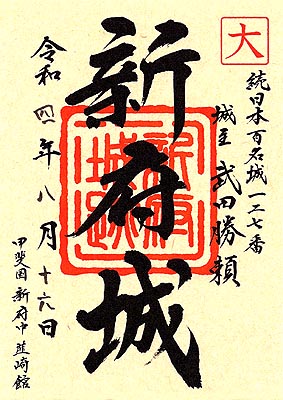 大
続日本百名城一二七番
城主 武田勝頼
新府城
新府城跡
令和四年八月十六日
甲斐国 新府中 韮崎館